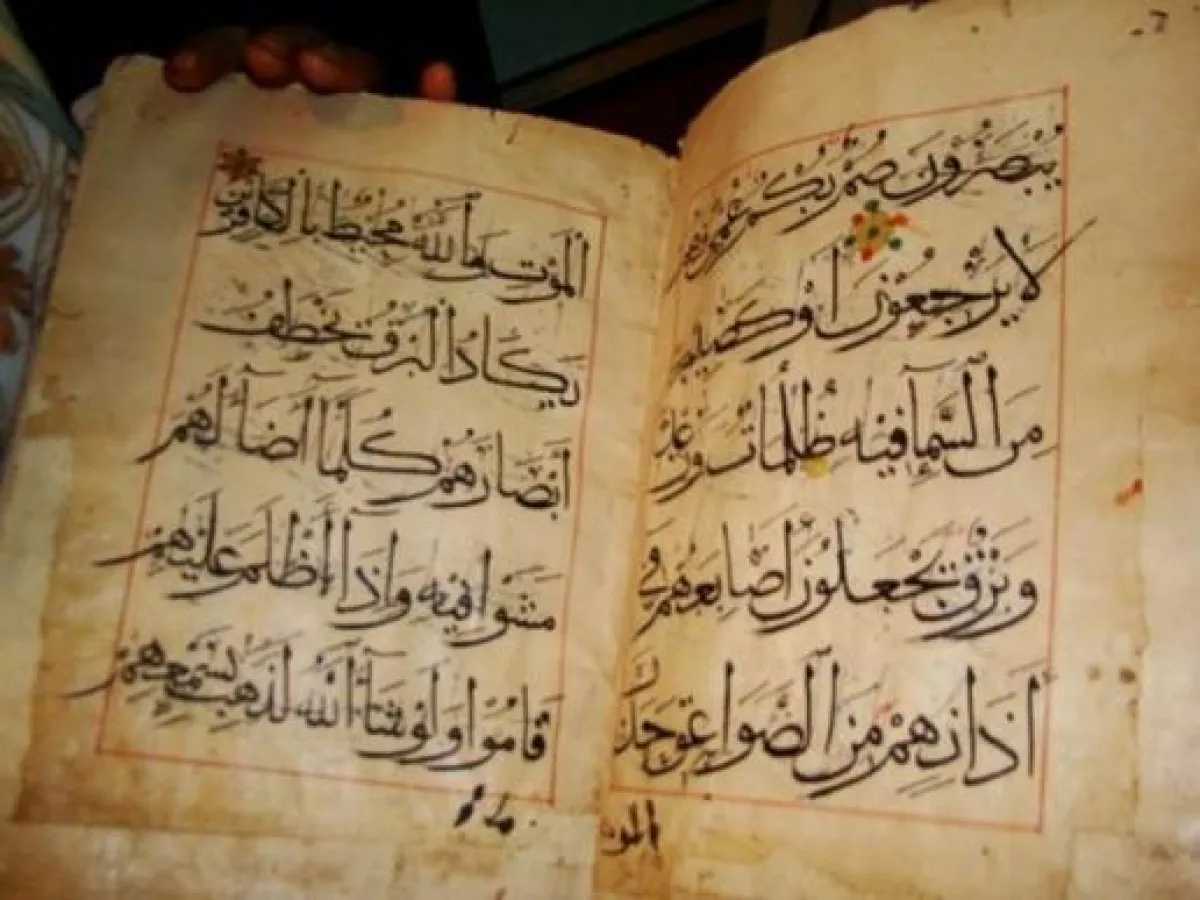 يُبْصِرُونَ صُمٌّ بُكْمٌ عُمْيٌ فَهُمْ
لَا يَرْجِعُونَ اَوْ كَصَيِّبٍ
مِنَ السَّمَآءِ فِيهِ ظُلُمَاتٌ وَرَعْدٌ
وَبَرْقٌ يَجْعَلُونَ اَصَابِعَهُمْ فِي
اٰذَانِهِمْ مِنَ الصَّوَاعِقِ حَذَرَ
الموت
الْمَوْتِ وَاللّٰهُ مُحِيطٌ بِالْكَافِرِينَ
يَكَادُ الْبَرْقُ يَخْطَفُ
اَبْصَارَهُمْ كُلَّمَآ اَضَآءَ لَهُمْ
مَشَوْا فِيهِ وَاِذَآ اَظْلَمَ عَلَيْهِمْ
قَامُوا وَلَوْ شَآءَ اللّٰهُ لَذَهَبَ بِسَمْعِهِمْ